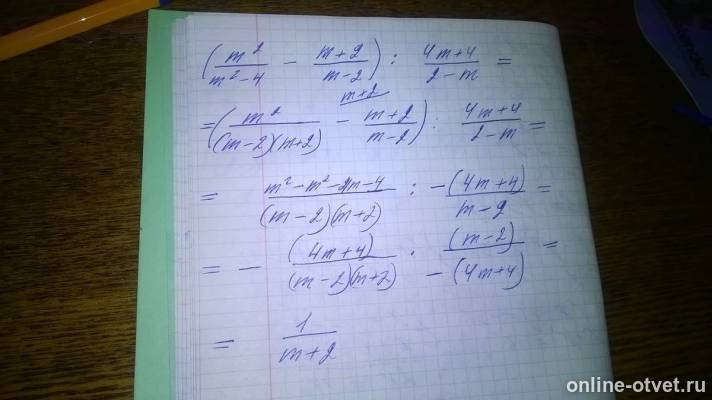 (m²/(m²-4) - (m+2)/(m-2)) : (4m+4)/(2-m) =
= (m²/((m-2)(m+2)) - (m+2)/(m-2)) : (4m+4)/(2-m) =
m+2
= (m²-m²-4m-4)/((m-2)(m+2)) : -(4m+4)/(m-2) =
= - (4m+4)/((m-2)(m+2)) · (m-2)/-(4m+4) =
= 1/(m+2)
online-otvet.ru